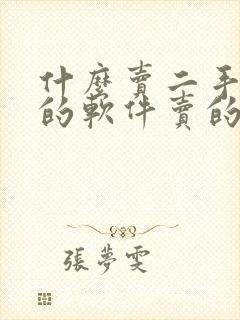 什麼賣二手
的軟件賣的
張夢雯